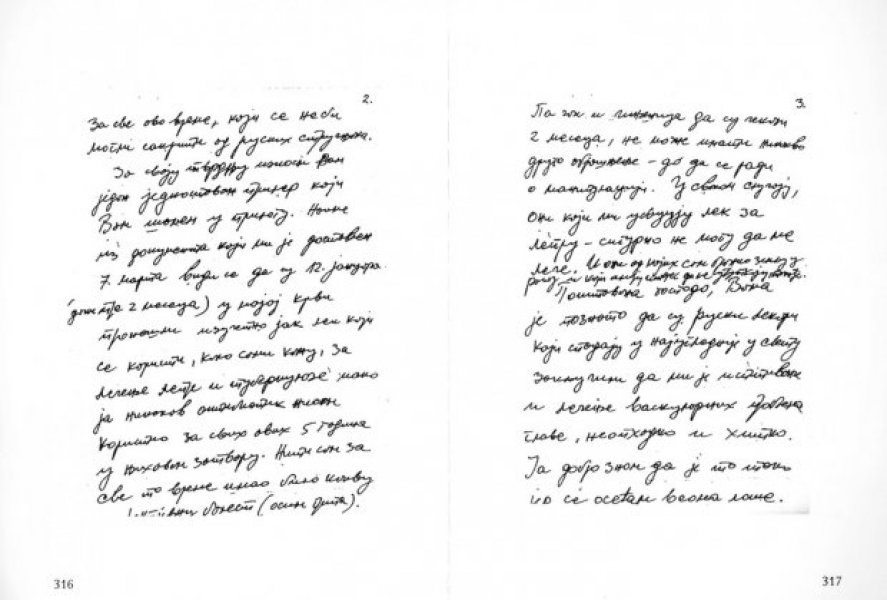 2.
За све ово време, који се не би
могли сакрити од руских стручњака.
За своју тврдњу износим Вам
један једноставан пример који
Вам шаљем у прилогу. Наиме
из документа који ми је достављен
7. марта види се да су 12. јануара
(дакле пре 2 месеца) у мојој крви
пронашли изузетно јак лек који
се користи, како сами кажу, за
лечење лепре и туберкулозе иако
ја никакав антибиотик нисам
користио за свих ових 5 година
у њиховом затвору. Нити сам за
све то време имао било какву
болест (осим грипа).
316
3.
Па чак и чињеница да су чекали
2 месеца, не може имати никакво
друго објашњење – до да се ради
о манипулацији. У сваком случају,
они који ми убацују лек за
лепру – сигурно не могу да ме
лече. И они од којих сам бранио земљу у
рату и који имају интерес да ме ућуткају
Поштована господо, Вама
је познато да су руски лекари
који спадају у најугледније у свету
закључили да ми је испитивање
и лечење васкуларних проблема
главе, неопходно и хитно.
Ја добро знам да је то тако
јер се осећам веома лоше.
317